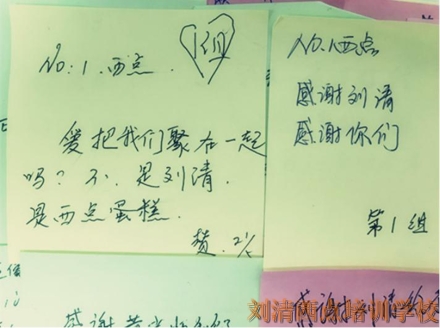 No:1.西点.
1组
爱把我们聚在一起
吗?不.是刘清.
是西点蛋糕.
No.1西点
感谢刘清
感谢你们
第1组
感谢
感谢刘清给
刘清西点培训学校